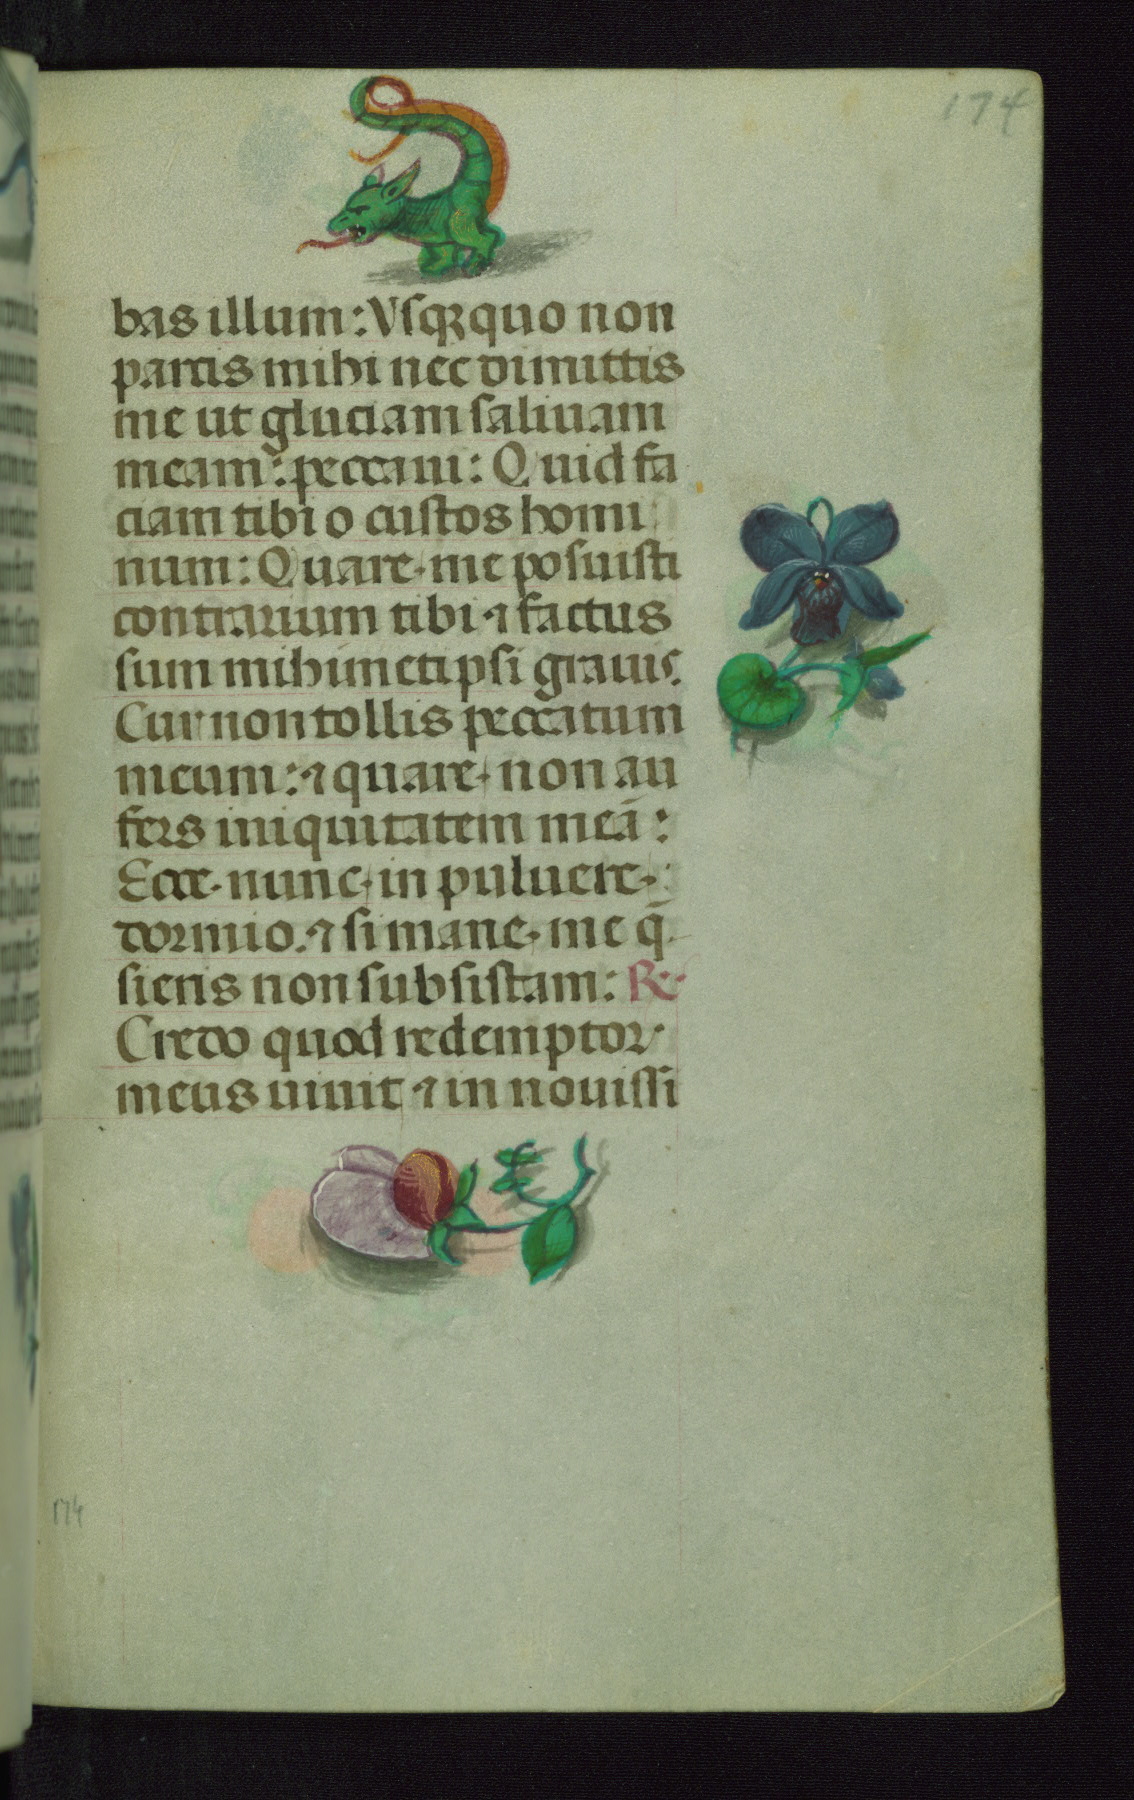 174
bas illum: Vsqꝫ quo non
parcis mihi nec dimittis
me ut gluciam saliuam
meam: peccaui: Quid fa
ciam tibi o custos homi
num: Quare me posuisti
contrarium tibi ⁊ factus
sum mihimetipsi grauis.
Cur non tollis peccatum
meum: ⁊ quare non au
fers iniquitatem meā:
Ecce nunc in puluere
dormio. ⁊ si mane me q̄
sieris non subsistam: R̶.
Credo quod redemptor
meus uiuit ⁊ in nouissi
174